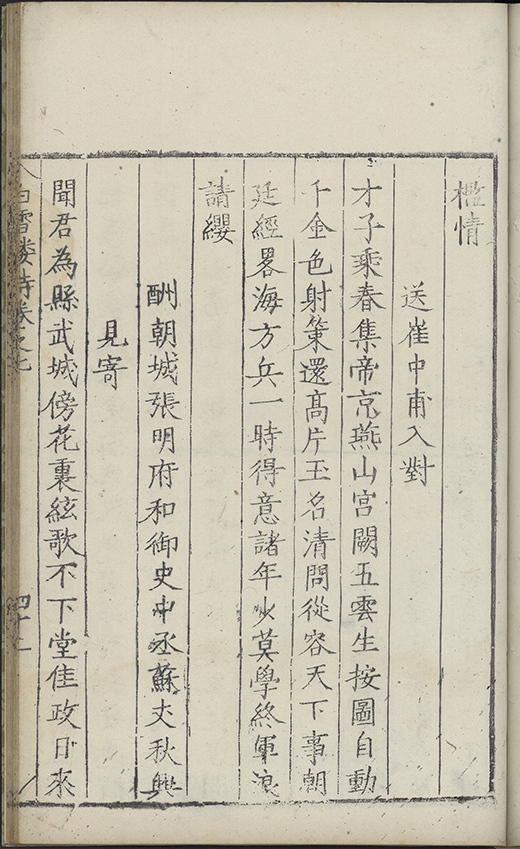 檻情
送崔中甫入對
才子乘春集帝京燕山宮闕五雲生按圖自動
千金色射策還高片玉名清問從容天下事朝
廷經畧海方兵一時得意諸年少莫學終軍浪
請纓
酬朝城張明府和御史中丞蘇丈秋興
見寄
聞君為縣武城傍花裏絃歌不下堂佳政日來
白雪樓詩卷之七